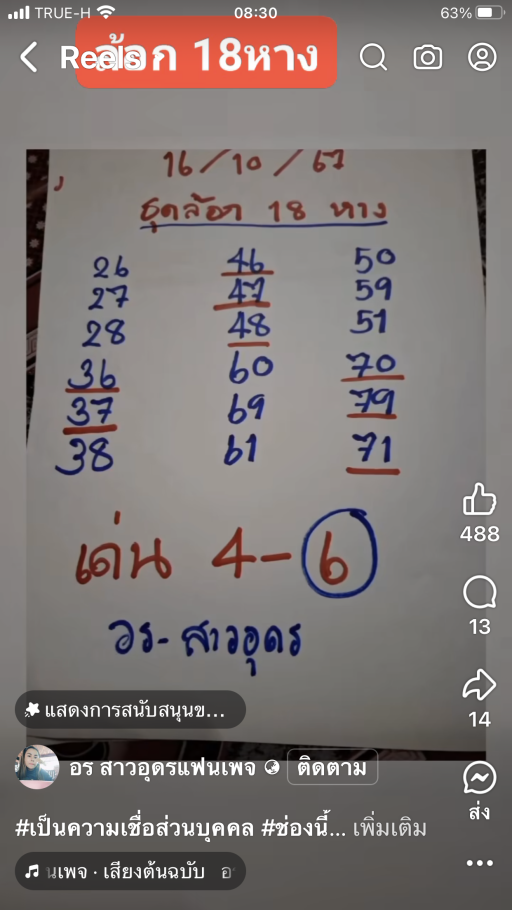 TRUE-H 08:30 63%
Reels
ล้อก 18หาง
16/10/67
ชุดล้อก 18 หาง
26 46 50
27 47 59
28 48 51
36 60 70
37 69 79
38 61 71
เด่น 4-6
อร-สาวอุดร
488
13
14
แสดงการสนับสนุนข...
อร สาวอุดรแฟนเพจ ติดตาม
ส่ง
#เป็นความเชื่อส่วนบุคคล #ช่องนี้... เพิ่มเติม
นเพจ · เสียงต้นฉบับ อ